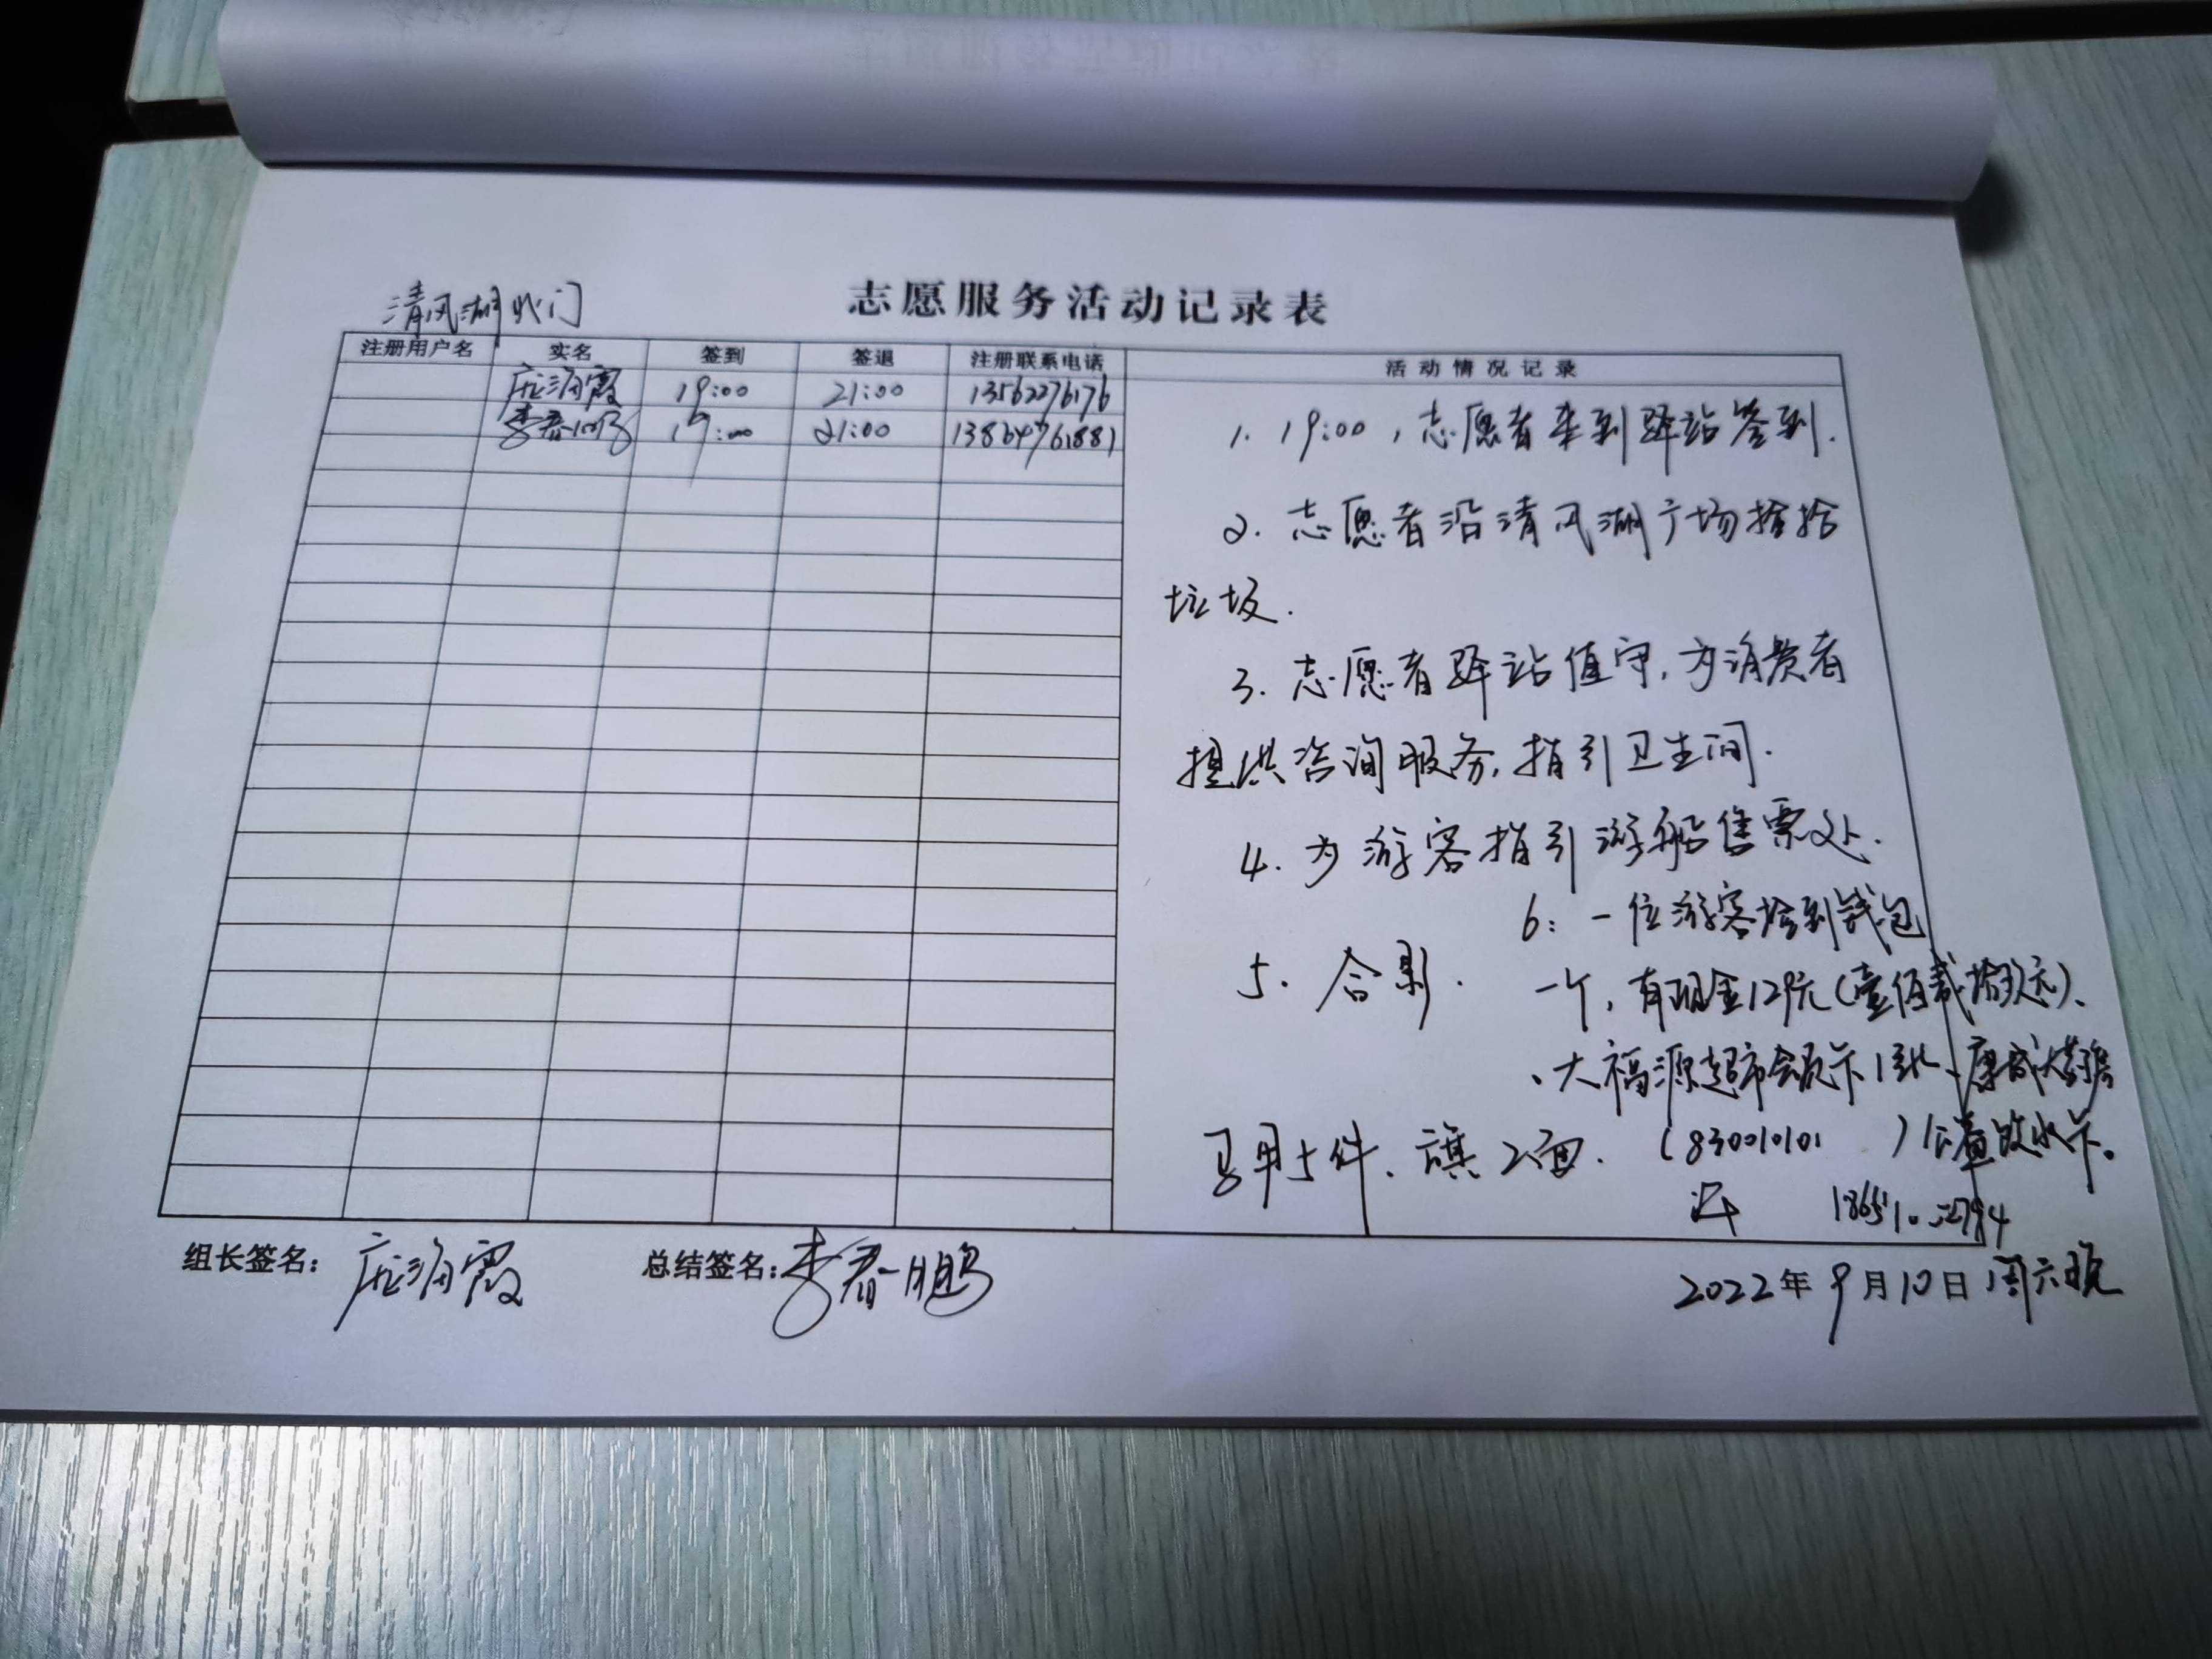 清风湖北门
志愿服务活动记录表
注册用户名 实名 签到 签退 注册联系电话 活动情况记录
庄海霞 19:00 21:00 13562276176
李春鹏 19:00 21:00 13864761881
1. 19:00,志愿者来到驿站签到.
2. 志愿者沿清风湖广场捡拾
垃圾.
3. 志愿者驿站值守,为消费者
提供咨询服务,指引卫生间.
4. 为游客指引游船售票处.
5. 合影.
6: 一位游客捡到钱包
一个,有现金129元(壹佰贰拾玖元)、
、大福源超市会员卡1张、康成大药房
(830010101 )
马甲5件、旗2面.
组长签名: 庄海霞 总结签名: 李春鹏
2022年9月10日 周六晚